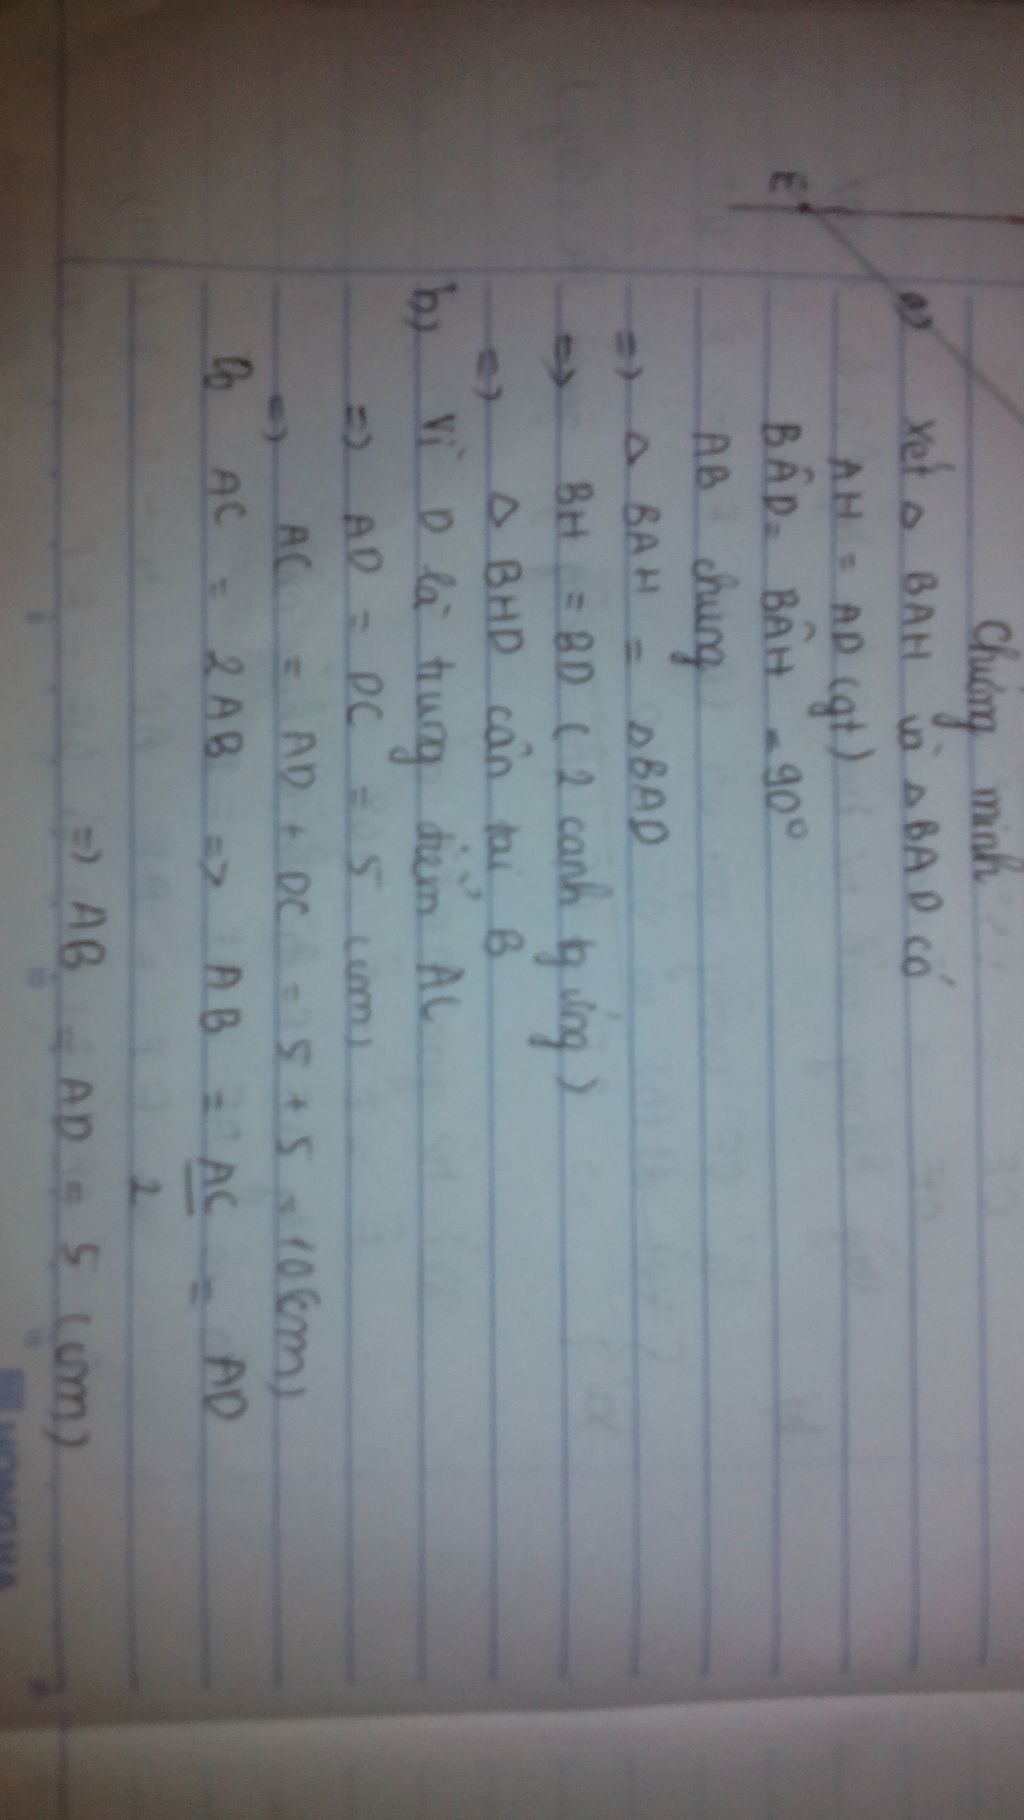 Chứng minh
E
a) Xét Δ BAH và Δ BAD có
AH = AD (gt)
BÂD = BÂH = 90°
AB chung
=) Δ BAH = Δ BAD
=) BH = BD ( 2 cạnh tg ứng )
=) Δ BHD cân tại B
b) Vì D là trung điểm AC
=) AD = DC = 5 (cm)
=) AC = AD + DC = 5 + 5 = 10 (cm)
AC = 2AB => AB = AC/2 = AD
=) AB = AD = 5 (cm)